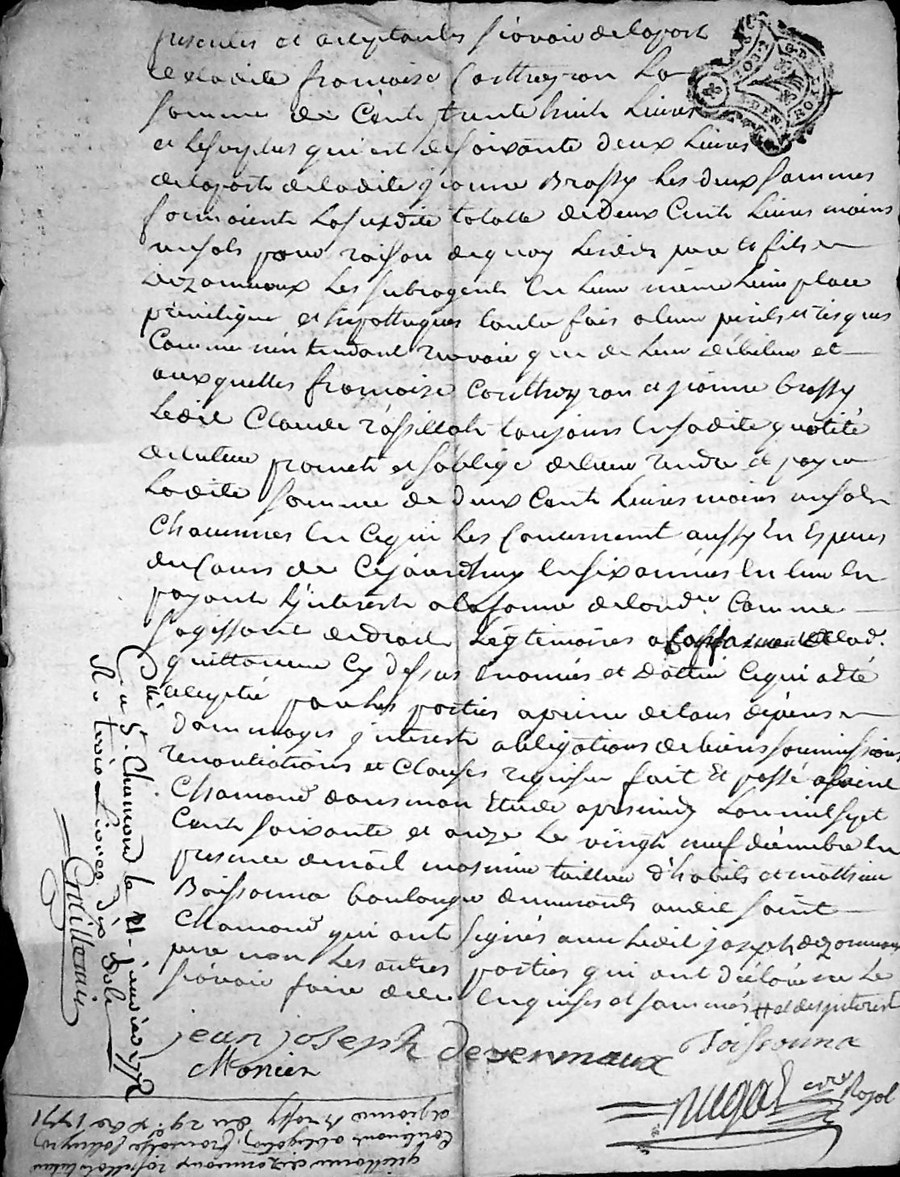 presentes et acceptantes sçavoir de la part
de ladite françoise Couttreyron La
somme de Cent trente huit Livres
et Le surplus qui est de soixante deux Livres
de la part de ladite jeanne Brossy Les deux sommes
formoients La susdite totalle de Deux Cents Livres moins
un sols pour raison de quoy Lesdits pere et fils
dezormeaux Les subrogents En Leur même Lieu place
privilege et hypotheques toutte fois a leur perils et risques
Comme n'entendant avoir que de Leur débiteur et
auxquelles françoise Couttreyron et jeanne brossy
Ledit Claude toujours En sadite quotité
de tuteur promet et s'oblige de leur rendre et payer
Ladite somme de deux Cents Livres moins un sols
Chacunnes En Ce qui Les Concernent aussy En Especes
du Cours de Cejourdhuy En six années En Leur En
payant L'interests a la forme de l'ord.ce Comme
s'agissant de droits Légitimaires
quittance Cy dessus Enoncés et Dattée Ce qui a été
accepté par Les parties a peine de tous dépens
Dommages q'interests obligations de biens soumissions
renontiations et Clauses requises fait Et passé a saint
Chamond dans mon Etude apresmidy L'an mil sept
Cents soixante et onze Le vingt neuf décembre En
presence de noël monier tailleur d'habits et mathieu
Boissonna boulanger demeurants audit saint
Chamond qui ont signés avec Ledit joseph dezormeaux
pere non Les autres parties qui ont declaré ne Le
sçavoir faire de ce Enquises et sommés # et des interest
jean joseph dezermaux Boissonna
Monier
nugos no.re Royal
C.llé
a St. Chamond le 11 janvier 1772
Reçu treize Livres dix sols
quittance dezormeaux
Contenant obligation françoise
et jeanne Brossy du 29e xbre 1771